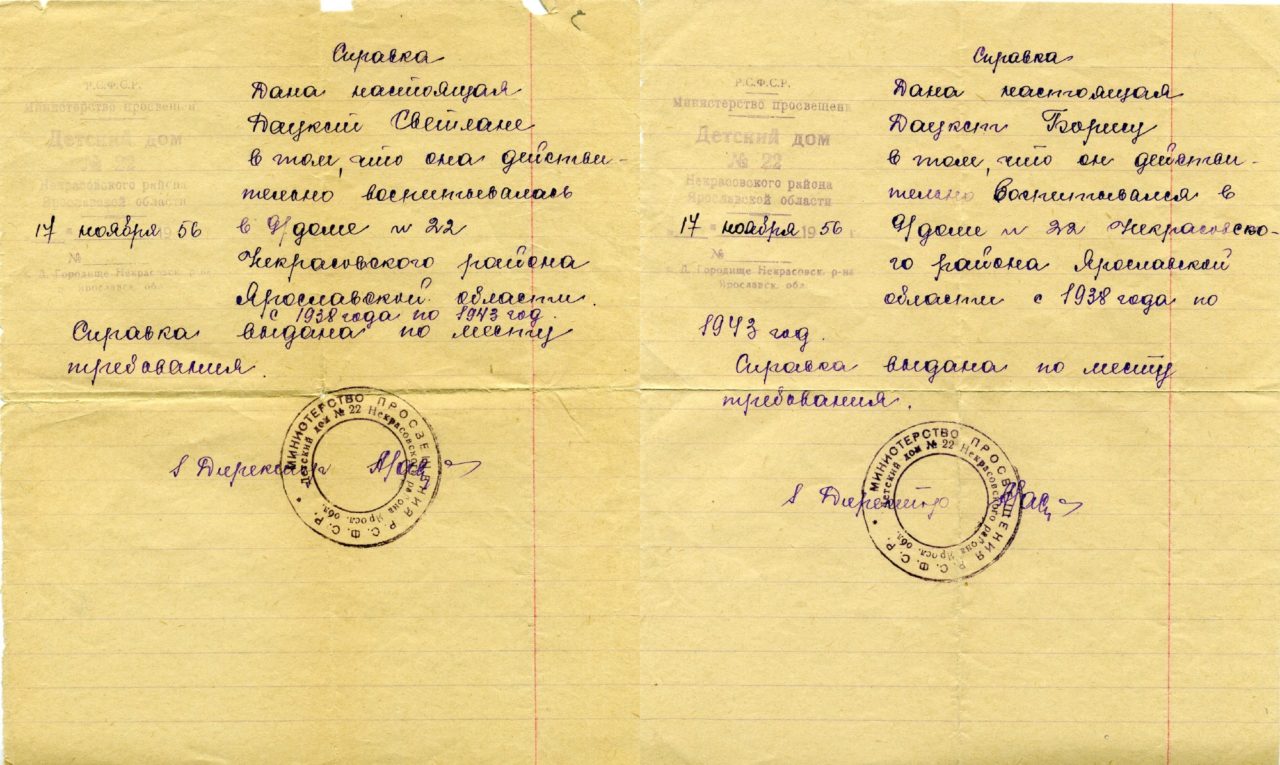 Справка
Р.С.Ф.С.Р.
Министерство просвещения
Детский дом
№ 22
Некрасовского района
Ярославской области
17 ноября 56
№
п. Городище Некрасовск. р-на
Ярославск. обл.
Дана настоящая
Дацкой Светлане
в том, что она действи-
тельно воспитывалась
в д/доме № 22
Некрасовского района
Ярославской области.
с 1938 года по 1943 год.
Справка выдана по месту
требования.
Директор
МИНИСТЕРСТВО ПРОСВЕЩЕНИЯ Р.С.Ф.С.Р.
Детский дом № 22 Некрасовского района Яросл. обл.
Справка
Р.С.Ф.С.Р.
Министерство просвещения
Детский дом
№ 22
Некрасовского района
Ярославской области
17 ноября 1956 г.
№
Д. Городище Некрасовск. р-на
Ярославск. обл.
Дана настоящая
Борису
в том, что он действи-
тельно воспитывался в
д/доме № 22 Некрасовско-
го района Ярославской
области с 1938 года по
1943 год.
Справка выдана по месту
требования.
Директор
МИНИСТЕРСТВО ПРОСВЕЩЕНИЯ Р.С.Ф.С.Р.
Детский дом № 22 Некрасовского района Яросл. обл.